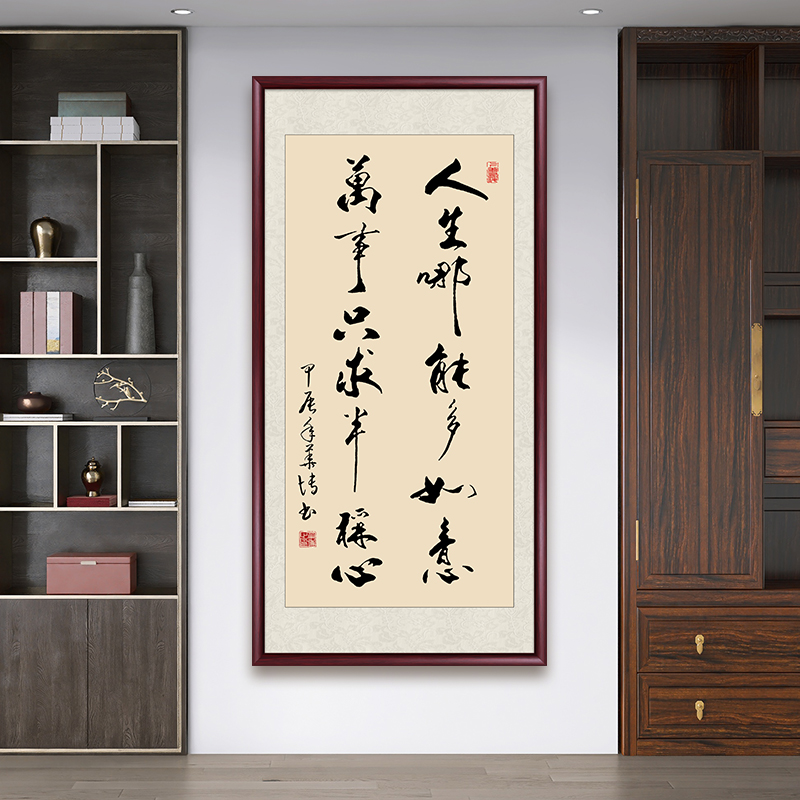 人生哪能多如意
萬事只求半稱心
甲辰年華博书